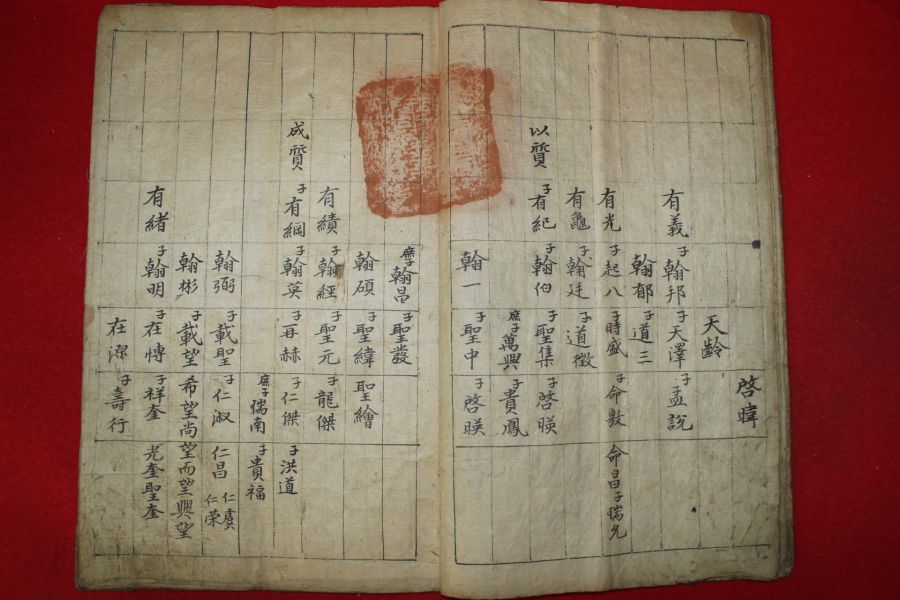 啓暐
天齡
有義 子翰邦 子天澤 子孟說
翰郁 子道三
有光 子起八 子時盛 子命敷 命昌子瑞允
有龜 子翰廷 子道徵
以質 子有紀 子翰伯 子聖集 子啓暎
庶子萬興 子貴鳳
翰一 子聖中 子啓暎
孽子翰昌 子聖發
翰碩 子聖緯 聖繪
有績 子翰經 子聖元 子龍傑
成質 子有綱 子翰英 子再赫 子仁傑 子洪道
庶子瑞南 子貴福
翰弼 子載聖 子仁淑 仁昌 仁虞 仁榮
翰彬 子載望 希望尚望而望興望
有緒 子翰明 子在博 子祥奎 光奎聖奎
在深 子壽行